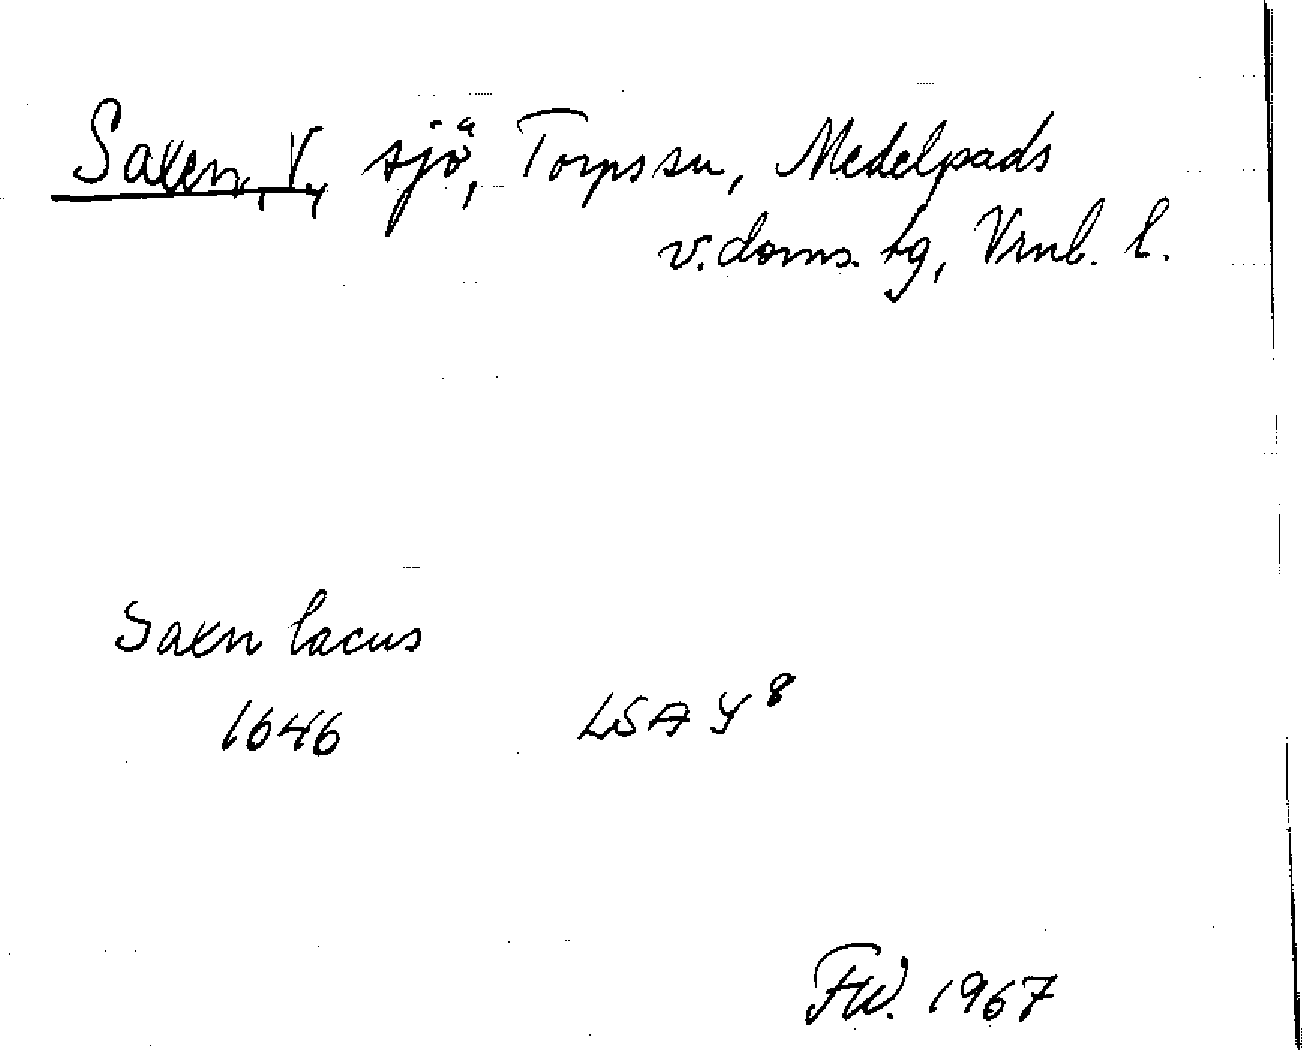 Saxen, V., sjö, Torps sn, Medelpads
v. doms. tg, Vrnl. l.
Saxn lacus
1646 LSA Y 8
FW. 1967